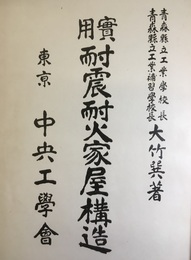 青森縣立工業學校長
青森縣立工業補習學校長
大竹巽著
實用
耐震耐火家屋構造
東京
中央工學會